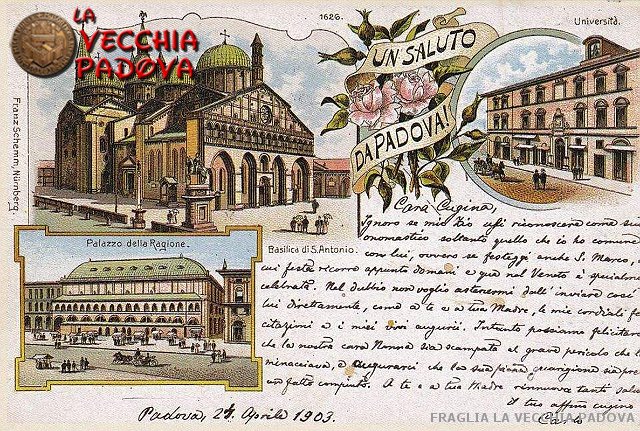 LA
VECCHIA
PADOVA
1626.
UN SALUTO
DA PADOVA!
Università.
Franz Schemm, Nürnberg.
Palazzo della Ragione.
Basilica di S. Antonio.
Cara Cugina,
Ignoro se mio Zio usi riconoscere come suo
onomastico soltanto quello che io ho comune
con lui, ovvero se festeggi anche S. Marco,
cui festa ricorre appunto domani e que nel Veneto è specialm
celebrata. Nel dubbio non voglio astenermi dall' inviare così
lui direttamente, come a te e a tua Madre, le mie cordiali fe
citazioni e i miei auguri. Intanto possiamo felicitare
che la nostra cara Nonna sia scampata al grave pericolo che
minacciava, e augurarci che la sua piena guarigione sia pre
un fatto compiuto. A te e a tua Madre rinnova tanti salu
il tuo affmo cugino
Padova, 24 Aprile 1903.
Carlo
FRAGLIA LA VECCHIA PADOVA